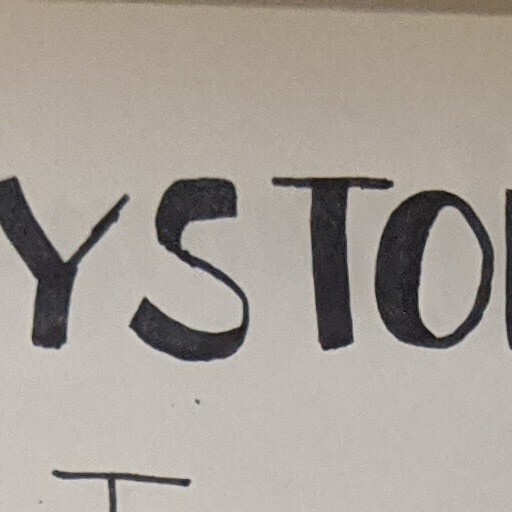 YSTO
T